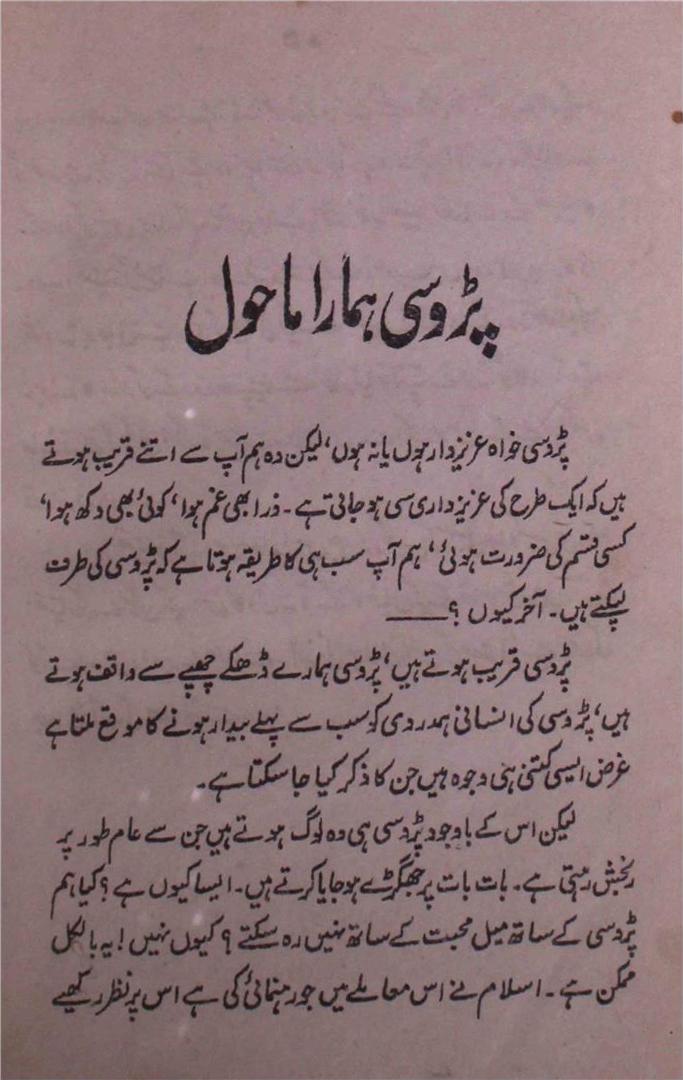 پڑوسی ہمارا ماحول
پڑوسی خواہ عزیز دار ہوں یا نہ ہوں، لیکن وہ ہم آپ سے اتنے قریب ہوتے
ہیں کہ ایک طرح کی عزیز داری سی ہو جاتی ہے۔ ذرا بھی غم ہوا، کوئی بھی دکھ ہوا،
کسی قسم کی ضرورت ہوئی، ہم آپ سب ہی کا طریقہ ہوتا ہے کہ پڑوسی کی طرف
لپکتے ہیں۔ آخر کیوں؟ ——
پڑوسی قریب ہوتے ہیں، پڑوسی ہمارے ڈھکے چھپے سے واقف ہوتے
ہیں، پڑوسی کی انسانی ہمدردی کو سب سے پہلے بیدار ہونے کا موقع ملتا ہے
غرض ایسی کتنی ہی وجوہ ہیں جن کا ذکر کیا جا سکتا ہے۔
لیکن اس کے باوجود پڑوسی ہی وہ لوگ ہوتے ہیں جن سے عام طور پر
رنجش رہتی ہے۔ بات بات پر جھگڑے ہو جایا کرتے ہیں۔ ایسا کیوں ہے؟ کیا ہم
پڑوسی کے ساتھ میل محبت کے ساتھ نہیں رہ سکتے؟ کیوں نہیں! یہ بالکل
ممکن ہے۔ اسلام نے اس معاملے میں جو رہنمائی کی ہے اس پر نظر رکھیے